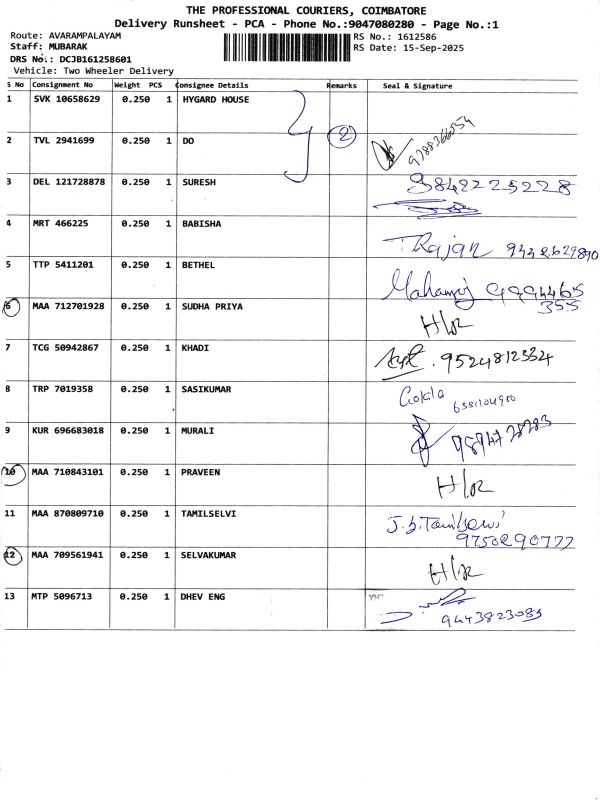 THE PROFESSIONAL COURIERS, COIMBATORE
Delivery Runsheet - PCA - Phone No.:9047080280 - Page No.:1
Route: AVARAMPALAYAM
Staff: MUBARAK
DRS No.: DCJB161258601
Vehicle: Two Wheeler Delivery
RS No.: 1612586
RS Date: 15-Sep-2025
S No Consignment No Weight PCS Consignee Details Remarks Seal & Signature
1 SVK 10658629 0.250 1 HYGARD HOUSE
2 TVL 2941699 0.250 1 DO 2
3 DEL 121728878 0.250 1 SURESH 9842225228
4 MRT 466225 0.250 1 BABISHA Thajan
5 TTP 5411201 0.250 1 BETHEL 9994465
355
6 MAA 712701928 0.250 1 SUDHA PRIYA H/or
7 TCG 50942867 0.250 1 KHADI 9524812334
8 TRP 7019358 0.250 1 SASIKUMAR Gokla
9 KUR 696683018 0.250 1 MURALI
10 MAA 710843101 0.250 1 PRAVEEN H/or
11 MAA 870809710 0.250 1 TAMILSELVI
9750290777
12 MAA 709561941 0.250 1 SELVAKUMAR H/or
13 MTP 5096713 0.250 1 DHEV ENG
9443823083